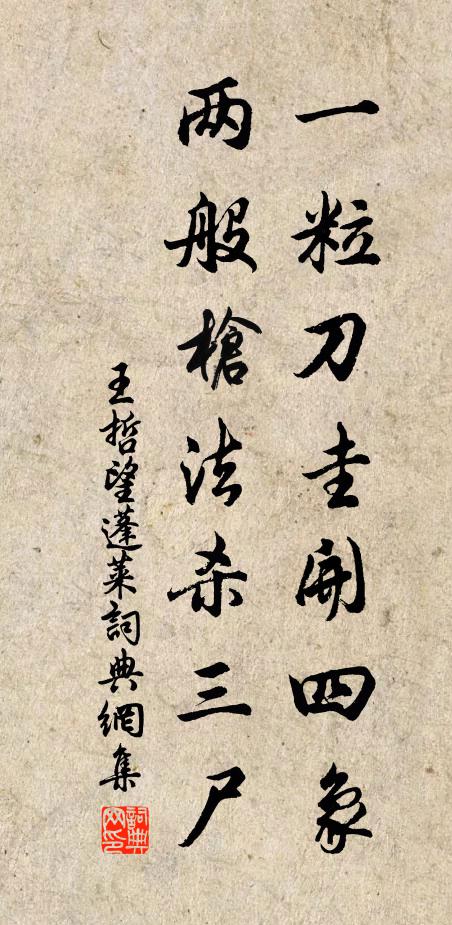 一粒刀圭開四象
两般槍法杀三尸
王哲望蓬萊詞典網集
詞典
网印